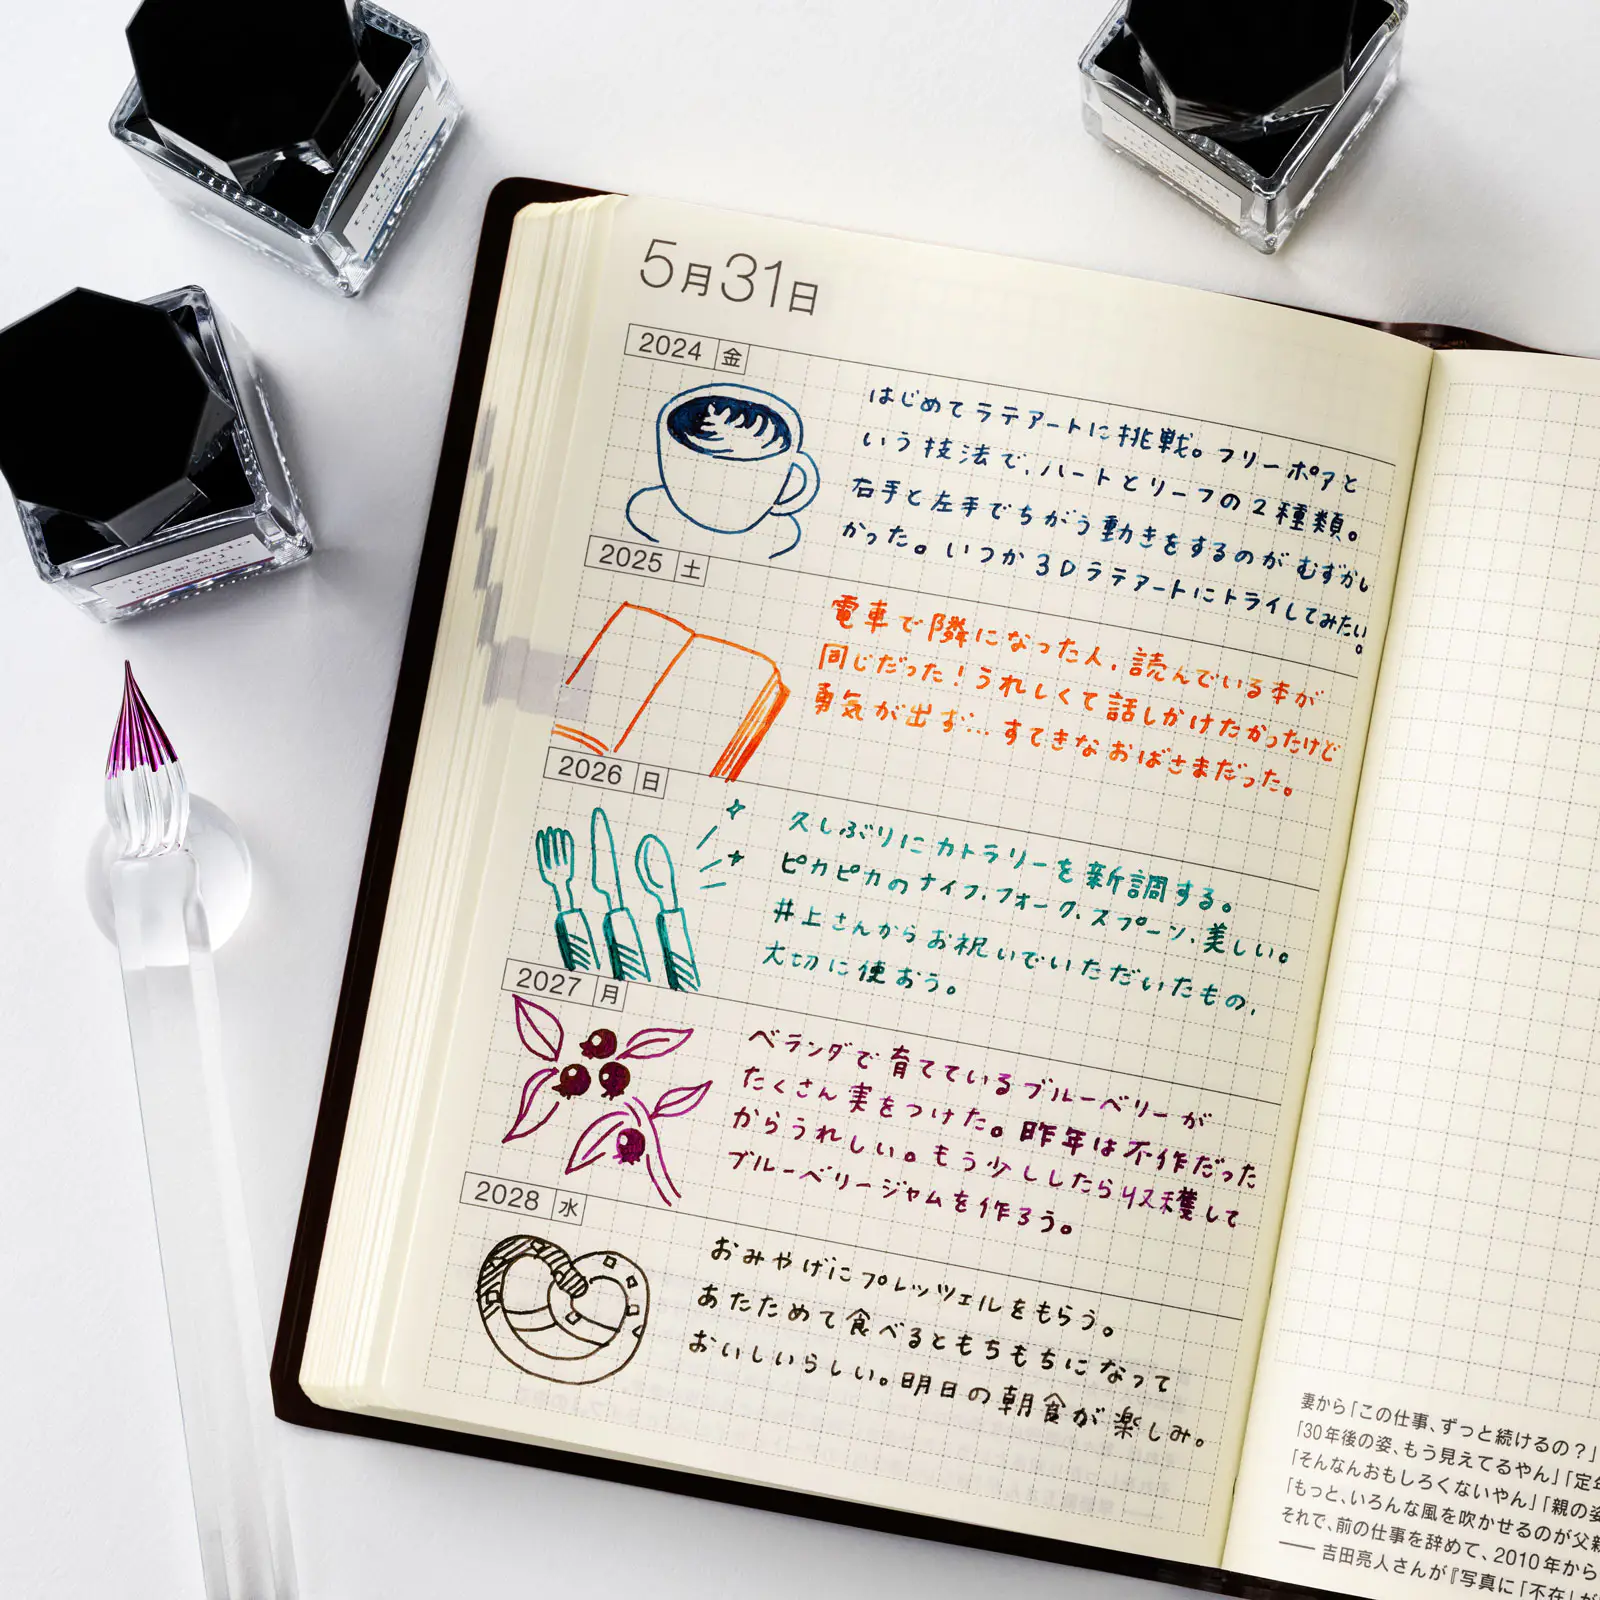 5月31日
2024 金
はじめてラテアートに挑戦。フリーポアと
いう技法で、ハートとリーフの2種類。
右手と左手でちがう動きをするのがむずかし
かった。いつか3Dラテアートにトライしてみたい。
2025 土
電車で隣になった人、読んでいる本が
同じだった!うれしくて話しかけたかったけど
勇気が出ず…すてきなおばさまだった。
2026 日
久しぶりにカトラリーを新調する。
ピカピカのナイフ、フォーク、スプーン、美しい。
井上さんからお祝いでいただいたもの、
大切に使おう。
2027 月
ベランダで育てているブルーベリーが
たくさん実をつけた。昨年は不作だった
からうれしい。もう少ししたら収穫して
ブルーベリージャムを作ろう。
2028 水
おみやげにプレッツェルをもらう。
あたためて食べるともちもちになって
おいしいらしい。明日の朝食が楽しみ。
妻から「この仕事、ずっと続けるの?」
「30年後の姿、もう見えてるやん」「定年
「そんなんおもしろくないやん」「親の姿
「もっと、いろんな風を吹かせるのが父親
それで、前の仕事を辞めて、2010年から
── 吉田亮人さんが『写真に「不在」が